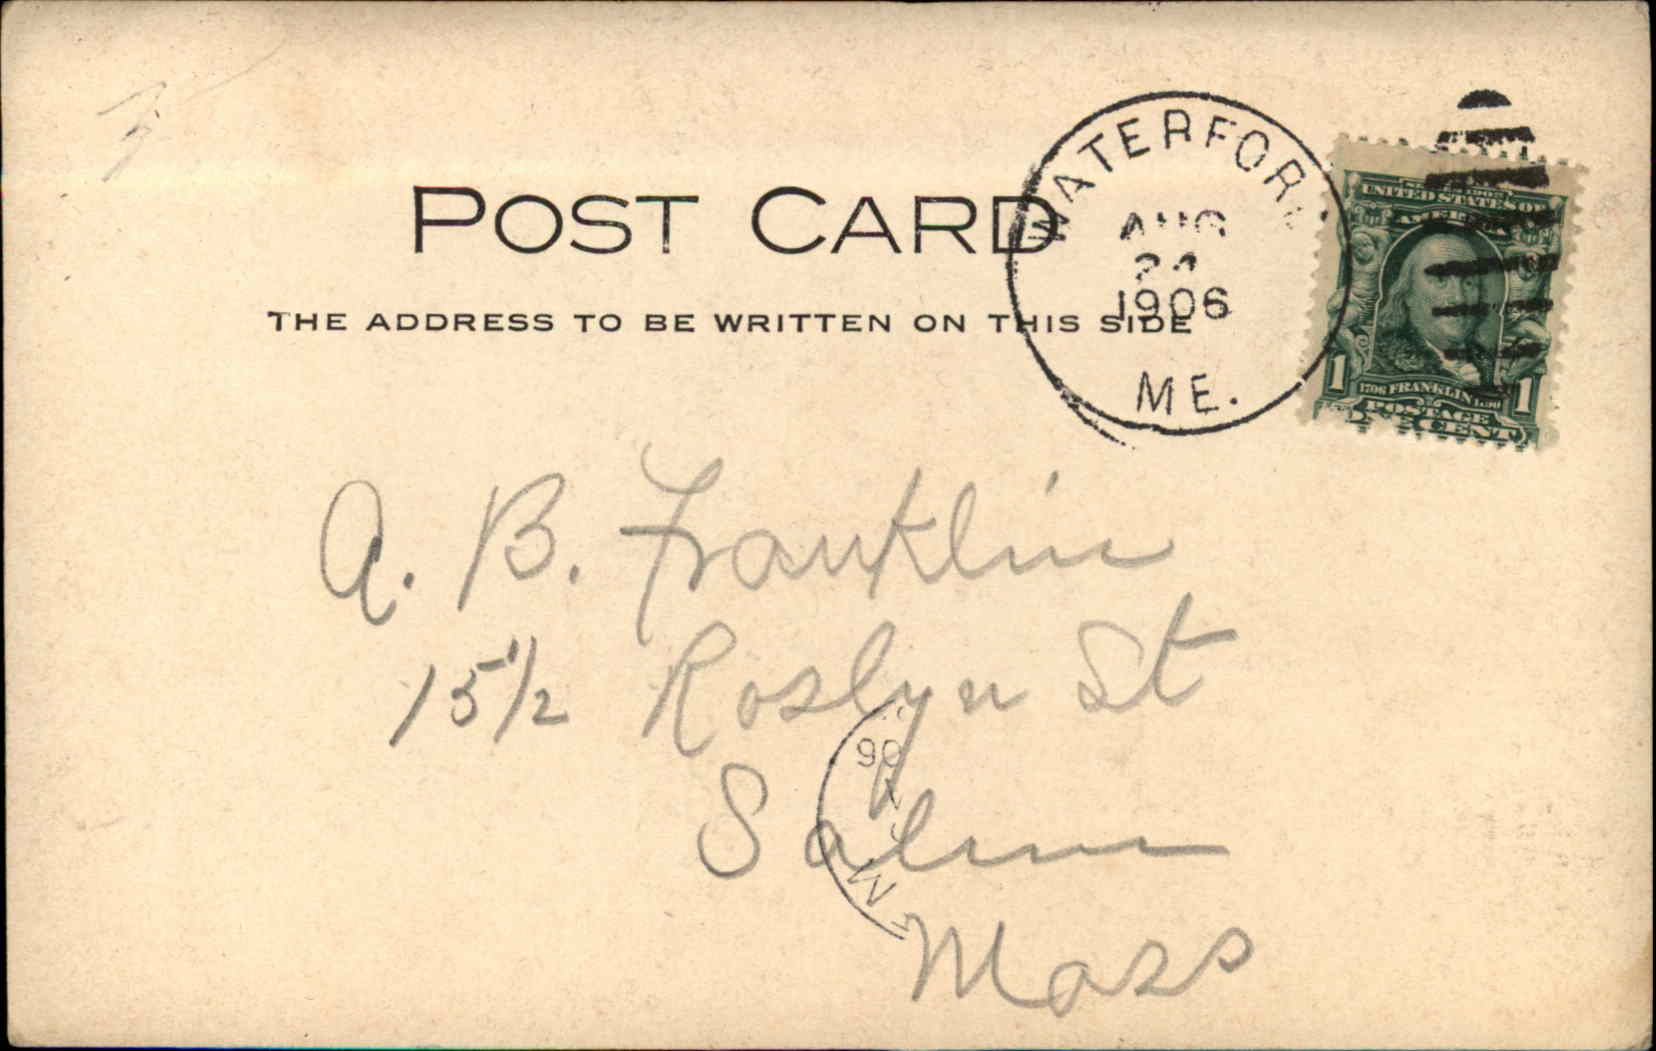 POST CARD
THE ADDRESS TO BE WRITTEN ON THIS SIDE
WATERFORD
AUG
1906
ME.
UNITED STATES OF
AMERICA
1 1706 FRANKLIN 1790 1
POSTAGE
CENT
A. B. Franklin
15 1/2 Roslyn St
Salem
Mass
06
M